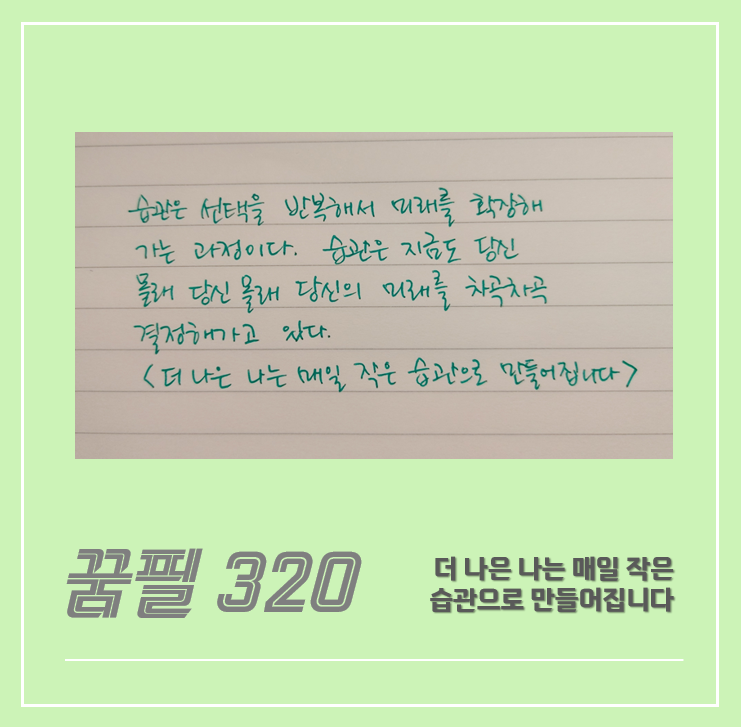 습관은 선택을 반복해서 미래를 확장해
가는 과정이다. 습관은 지금도 당신
몰래 당신 몰래 당신의 미래를 차곡차곡
결정해가고 있다.
<더 나은 나는 매일 작은 습관으로 만들어집니다>
꿈필 320
더 나은 나는 매일 작은
습관으로 만들어집니다